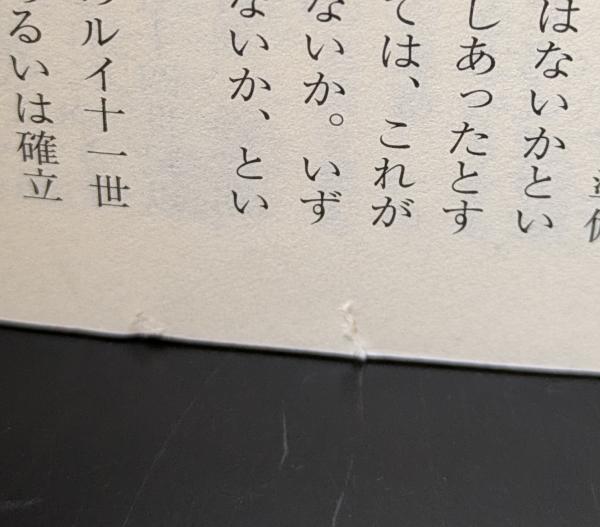 はないかとい
しあったとす
ては、これが
ないか。いず
ないか、とい
ルイ十一世
るいは確立